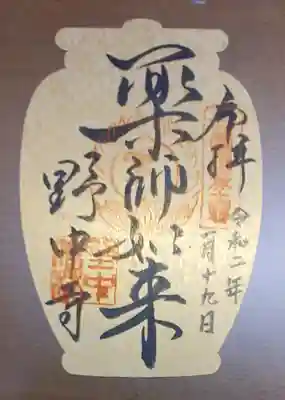 奉拝 令和二年
一月十九日
薬師如来
野中寺